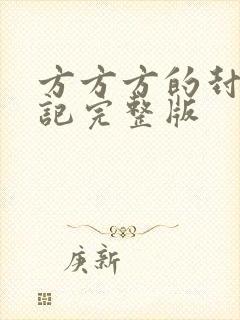 方方方的封
記完整版
庚新